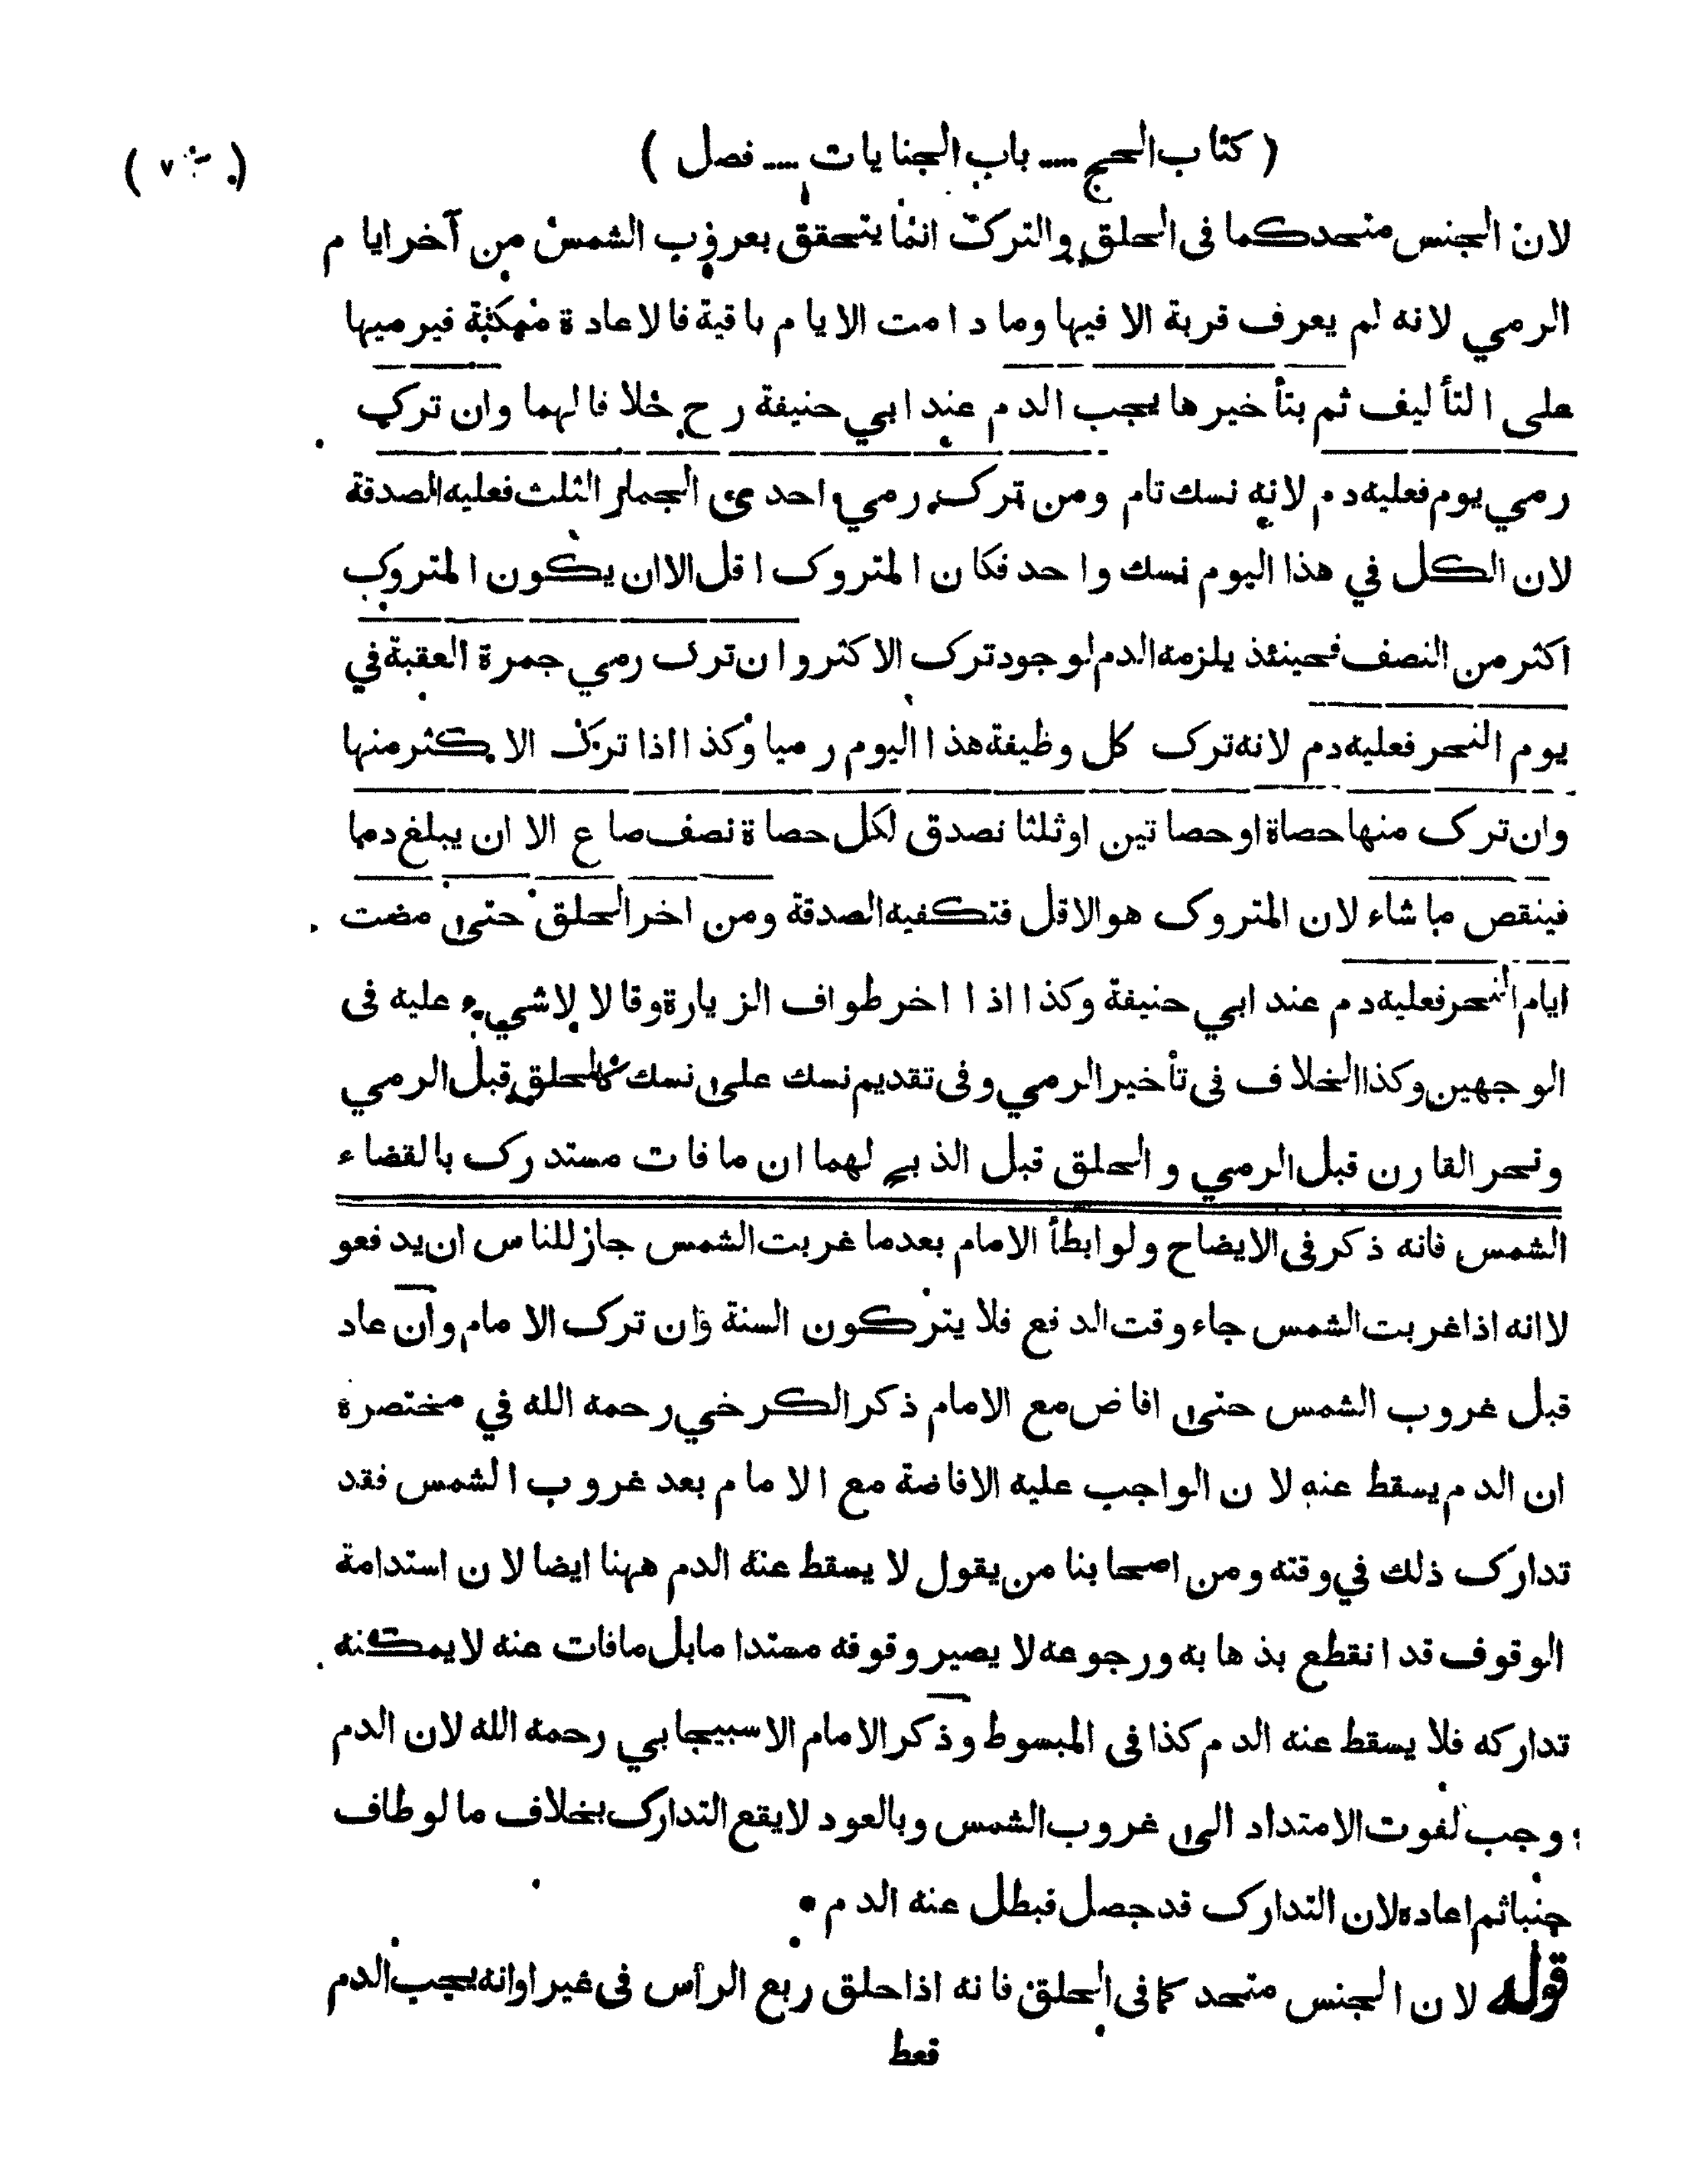 ( كتاب الحج ..... باب الجنايات ..... فصل )
لان الجنس متحد كما فى الحلق والترك انما يتحقق بغروب الشمس من آخر ايام
الرمي لانه لم يعرف قربة الا فيها وما دامت الايام باقية فالاعادة ممكنة فيرميها
على التأليف ثم بتأخيرها يجب الدم عند ابي حنيفة رح خلافا لهما وان ترك
رمي يوم فعليه دم لانه نسك تام ومن ترك رمي احدى الجمار الثلث فعليه الصدقة
لان الكل في هذا اليوم نسك واحد فكان المتروك اقل الا ان يكون المتروك
اكثر من النصف فحينئذ يلزمه الدم لوجود ترك الاكثر وان ترك رمي جمرة العقبة في
يوم النحر فعليه دم لانه ترك كل وظيفة هذا اليوم رميا وكذا اذا ترك الاكثر منها
وان ترك منها حصاة او حصاتين او ثلثا تصدق لكل حصاة نصف صاع الا ان يبلغ دما
فينقص ما شاء لان المتروك هو الاقل فتكفيه الصدقة ومن اخر الحلق حتى مضت
ايام النحر فعليه دم عند ابي حنيفة وكذا اذا اخر طواف الزيارة وقالا لا شيء عليه فى
الوجهين وكذا الخلاف فى تأخير الرمي وفى تقديم نسك على نسك كالحلق قبل الرمي
ونحر القارن قبل الرمي والحلق قبل الذبح لهما ان ما فات مستدرك بالقضاء
الشمس فانه ذكر فى الايضاح ولو ابطأ الامام بعدما غربت الشمس جاز للناس ان يدفعو
لا انه اذا غربت الشمس جاء وقت الدفع فلا يتركون السنة وان ترك الامام وان عاد
قبل غروب الشمس حتى افاض مع الامام ذكر الكرخي رحمه الله في مختصرة
ان الدم يسقط عنه لان الواجب عليه الافاضة مع الامام بعد غروب الشمس فقد
تدارك ذلك في وقته ومن اصحابنا من يقول لا يسقط عنه الدم ههنا ايضا لان استدامة
الوقوف قد انقطع بذهابه ورجوعه لا يصير وقوفه ممتدا ما بل ما فات عنه لا يمكنه
تداركه فلا يسقط عنه الدم كذا فى المبسوط وذكر الامام الاسبيجابي رحمه الله لان الدم
وجب لفوت الامتداد الى غروب الشمس وبالعود لا يقع التدارك بخلاف ما لو طاف
جنبا ثم اعاده لان التدارك قد حصل فبطل عنه الدم •
قوله لان الجنس متحد كما فى الحلق فانه اذا حلق ربع الرأس فى غير اوانه يجب الدم
فعط